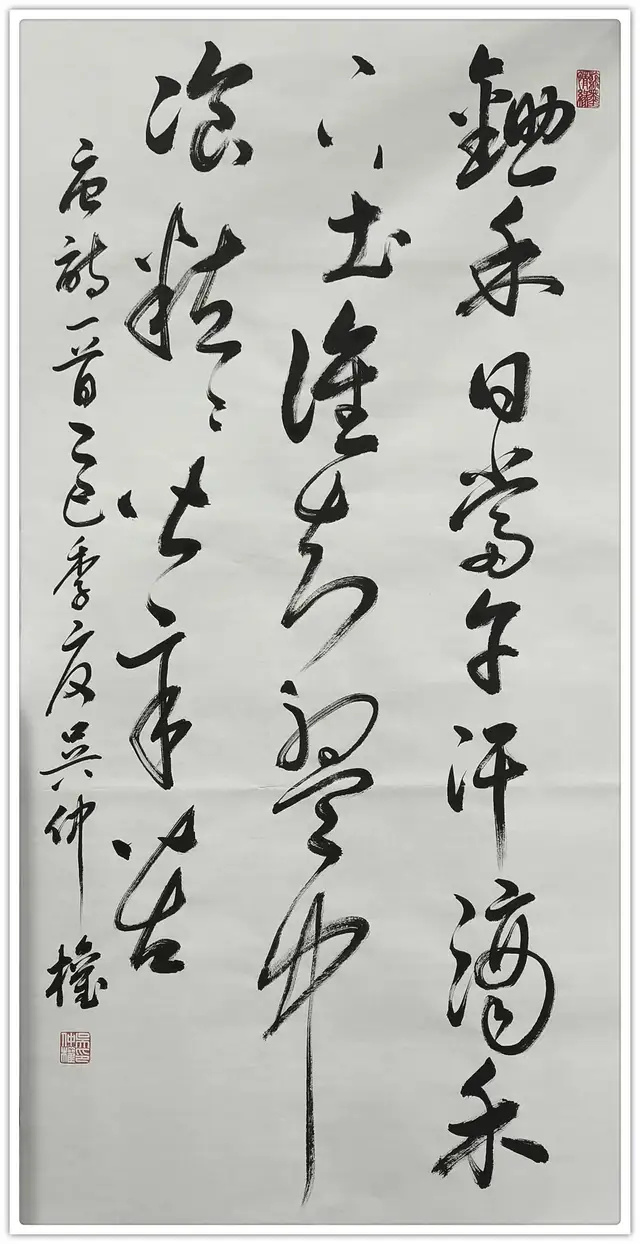 鋤禾日當午汗滴禾
下土誰知盤中
飡粒〻皆辛苦
唐詩一首乙巳季夏吴仲